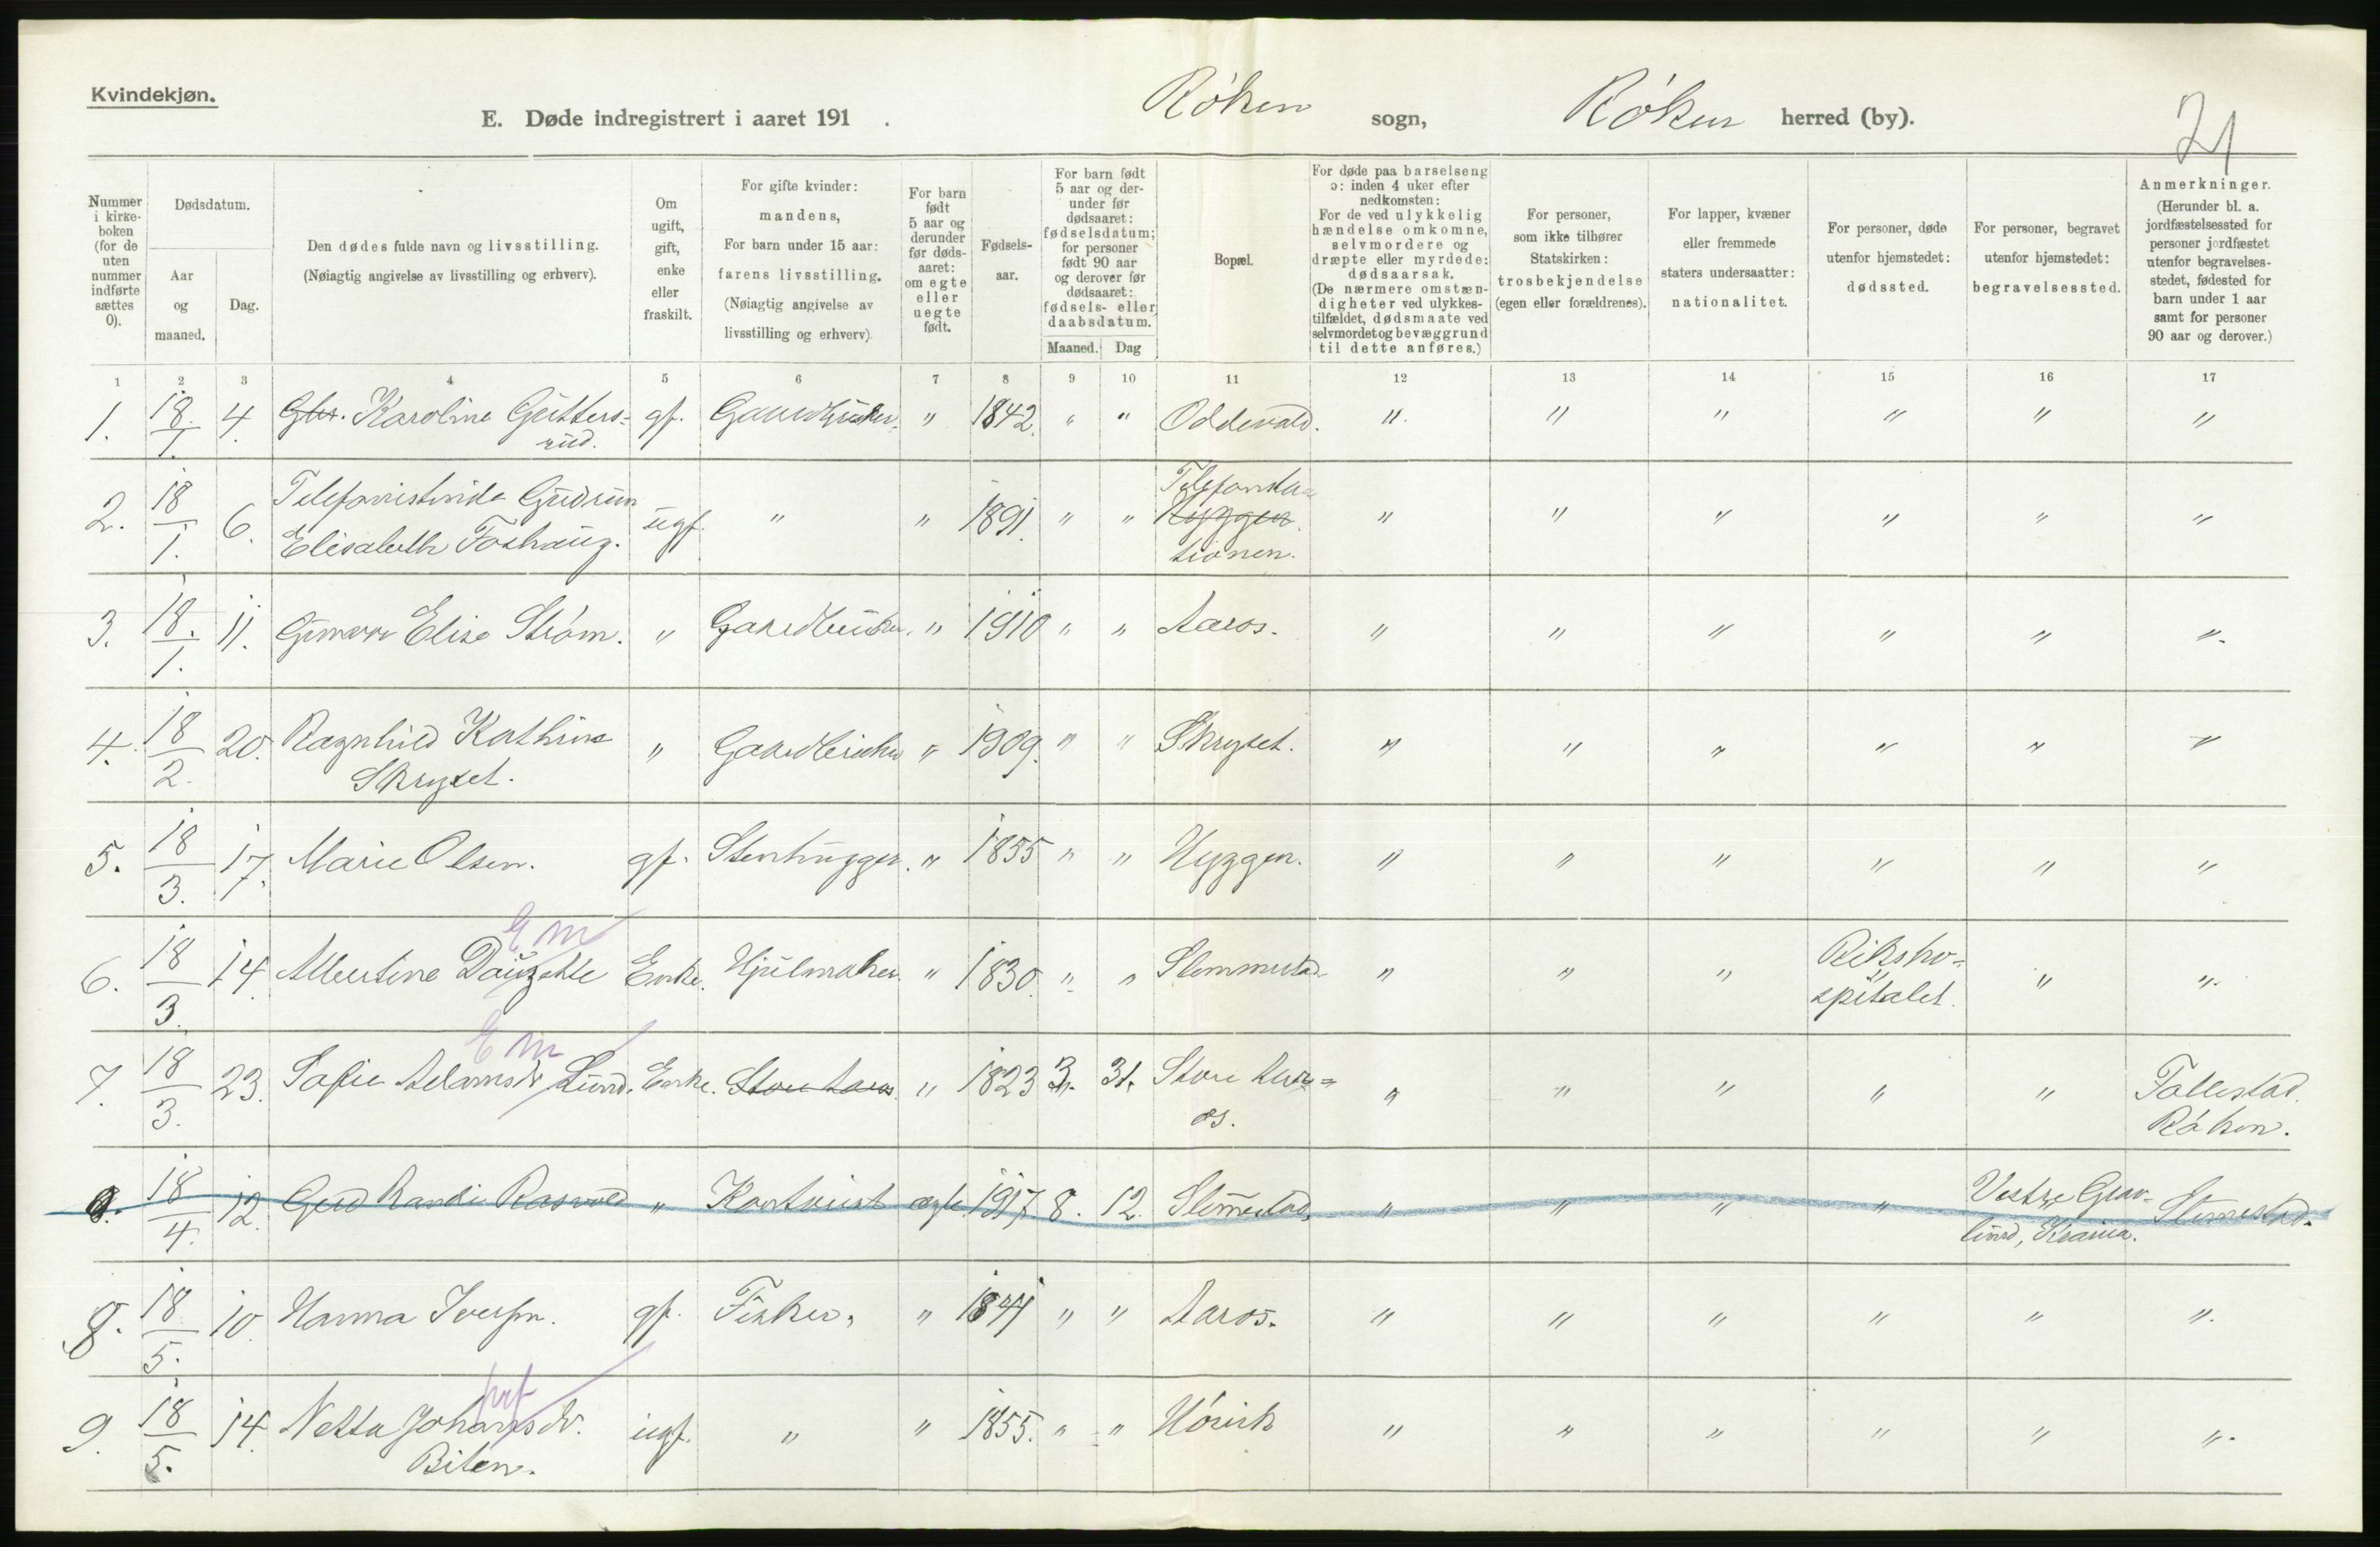 Kvindekjøn.
E. Døde indregistrert i aaret 191 .
Røken sogn, Røken herred (by).
21
Nummer i kirkeboken (for de uten nummer indførte sættes 0).
Dødsdatum.
Aar og maaned.
Dag.
Den dødes fulde navn og livsstilling.
(Nøiagtig angivelse av livsstilling og erhverv).
Om ugift, gift, enke eller fraskilt.
For gifte kvinder: mandens,
For barn under 15 aar: farens livsstilling.
(Nøiagtig angivelse av livsstilling og erhverv)
For barn født 5 aar og derunder før dødsaaret: om egte eller uegte født.
Fødselsaar.
For barn født 5 aar og derunder før dødsaaret: fødselsdatum; for personer født 90 aar og derover før dødsaaret: fødsels- eller daabsdatum.
Maaned. Dag
Bopæl.
For døde paa barselseng ɔ: inden 4 uker efter nedkomsten:
For de ved ulykkelig hændelse omkomne, selvmordere og dræpte eller myrdede: dødsaarsak.
(De nærmere omstændigheter ved ulykkestilfældet, dødsmaate ved selvmordet og bevæggrund til dette anføres.)
For personer, som ikke tilhører Statskirken: trosbekjendelse (egen eller forældrenes).
For lapper, kvæner eller fremmede staters undersaatter: nationalitet.
For personer, døde utenfor hjemstedet: dødssted.
For personer, begravet utenfor hjemstedet: begravelsessted.
Anmerkninger.
(Herunder bl. a. jordfæstelsessted for personer jordfæstet utenfor begravelsesstedet, fødested for barn under 1 aar samt for personer 90 aar og derover.)
1 2 3 4 5 6 7 8 9 10 11 12 13 14 15 16 17
1. 18/1. 4. Gbr. Karoline Guttersrud. gf. Gaardbruker. " 1842. " " Oddevald. " " " " " "
2. 18/1. 6. Telefonistinde Gudrun Elisabeth Foshaug. ugf. " " 1891. " " Telefonsta Hyggen. tionen. " " " " " "
3. 18./1. 11. Elise Strøm. " Gaardbruker. " 1910 " " Aaros. " " " " " "
4. 18/2. 20. Ragnhild Kathine Skryset. " Gaardbruker " 1909. " " Skryset. " " " " " "
5. 18/3. 17. Marie Olsen. gf. Stenhugger. " 1855 " " Hyggen. " " " " " "
Em
6. 18/3. 14. Albertine Enke. Hjulmaker. " 1830. " " Slemmestad. " " " Rikshospitalet. " "
Em
7. 18/3. 23. Sofie Adamsdr Lund. Enke. Store Aaros. " 1823 3. 31. Store Aaros. " " " " " Follestad. Røken.
18/4. 12. Gerd Randi " Kontorist ægte 1917. 8. 12. Slem̄estad. " " " " Vestre Gravlund, Krania. Slem̄estad.
8. 18/5. 10. Hanna Iversen. gf. Fisker. " 1841 " " Aaros. " " " " " "
9. 18/5. 14. Netta Johannsdr. Biten. ugf. " " 1855. " " Hørik " " " " " "